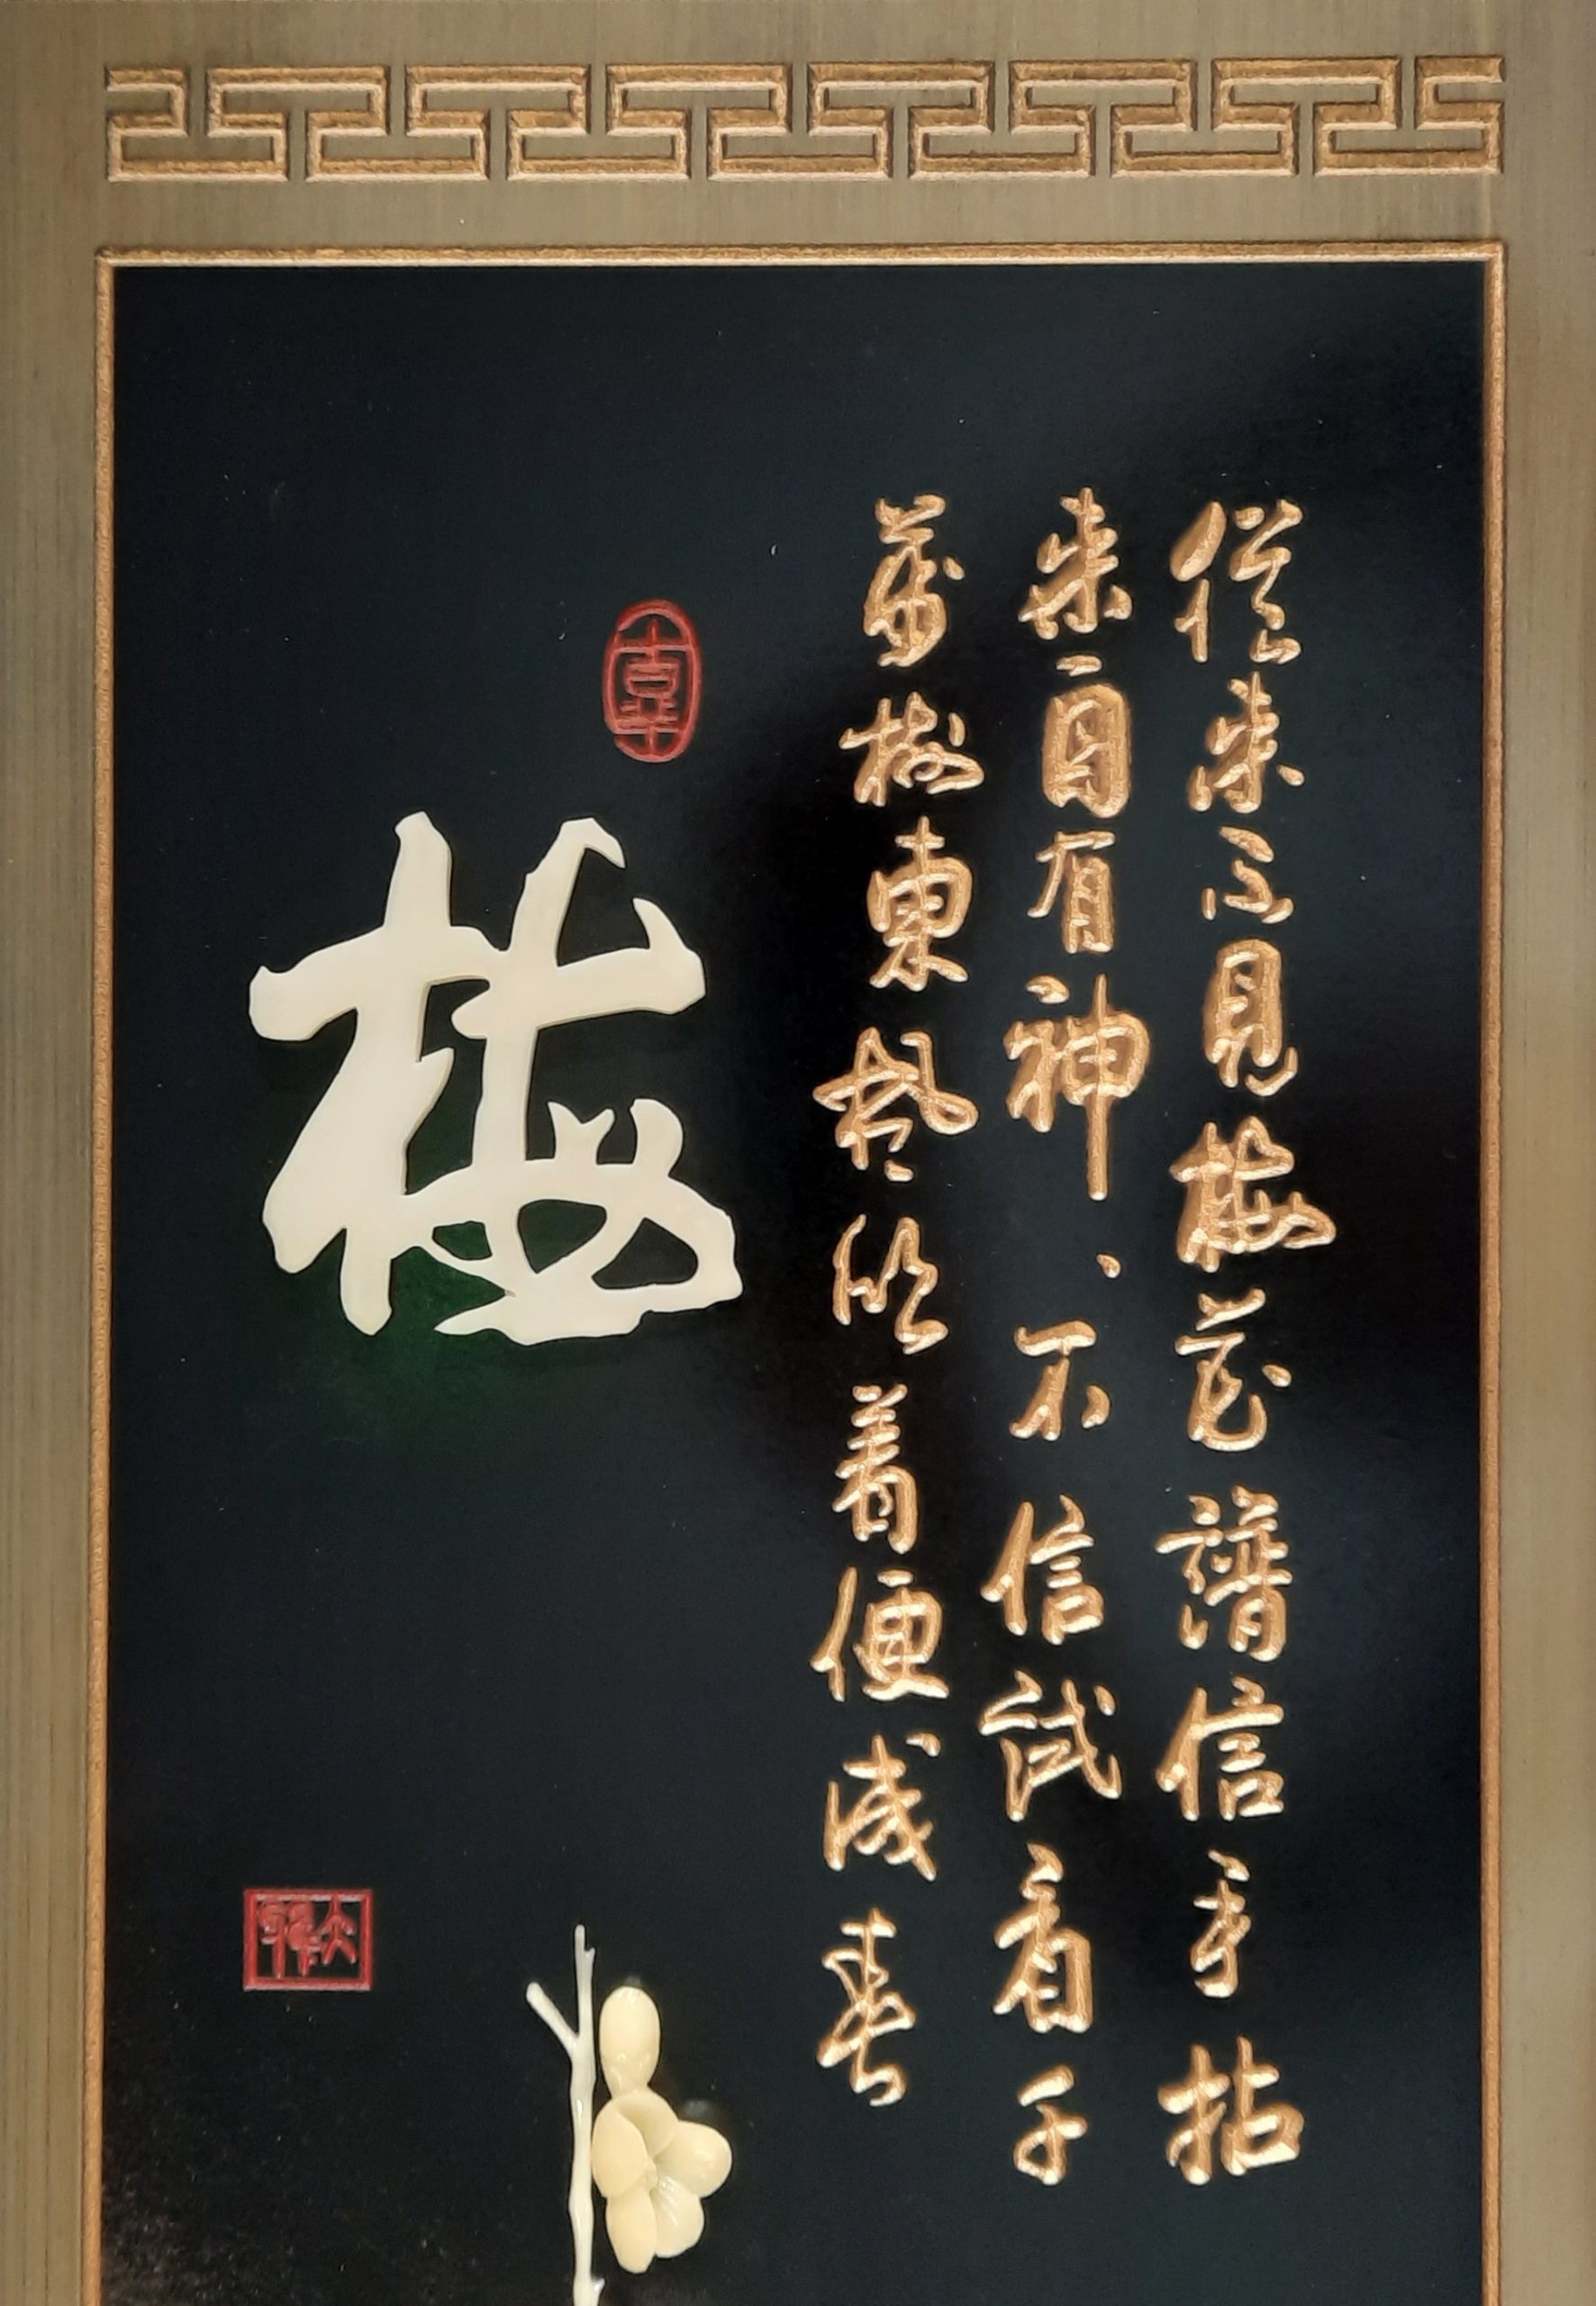 從来不見梅花譜信手拈
来自有神、不信試看千
萬樹東風吹着便成春
梅